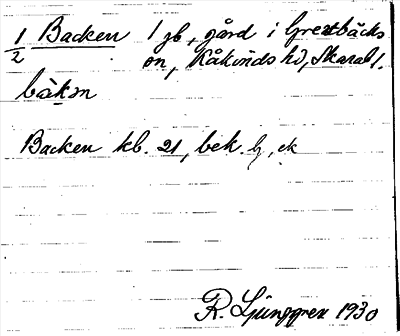 1/2 Backen 1 gb, gård i Grevbäcks
sn, Kåkinds hd, Skarab l.
bàkɜn
Backen kb. 21, bek. h, ek
R. Ljunggren 1930